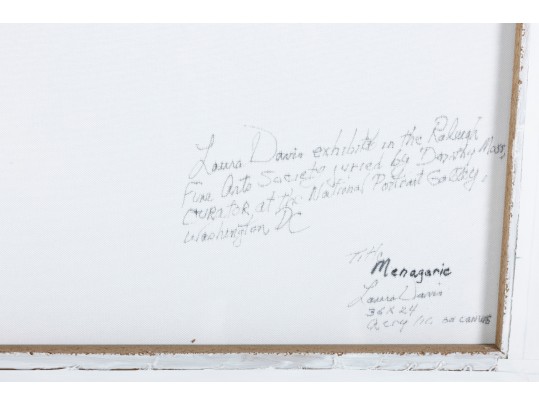 Laura Davis exhibits in the Raleigh
Fine Arts Society juried by Dorothy Moss,
Curator at the National Portrait Gallery,
Washington, DC
Title
Menagarie
Laura Davis
36 x 24
Acrylic on canvas